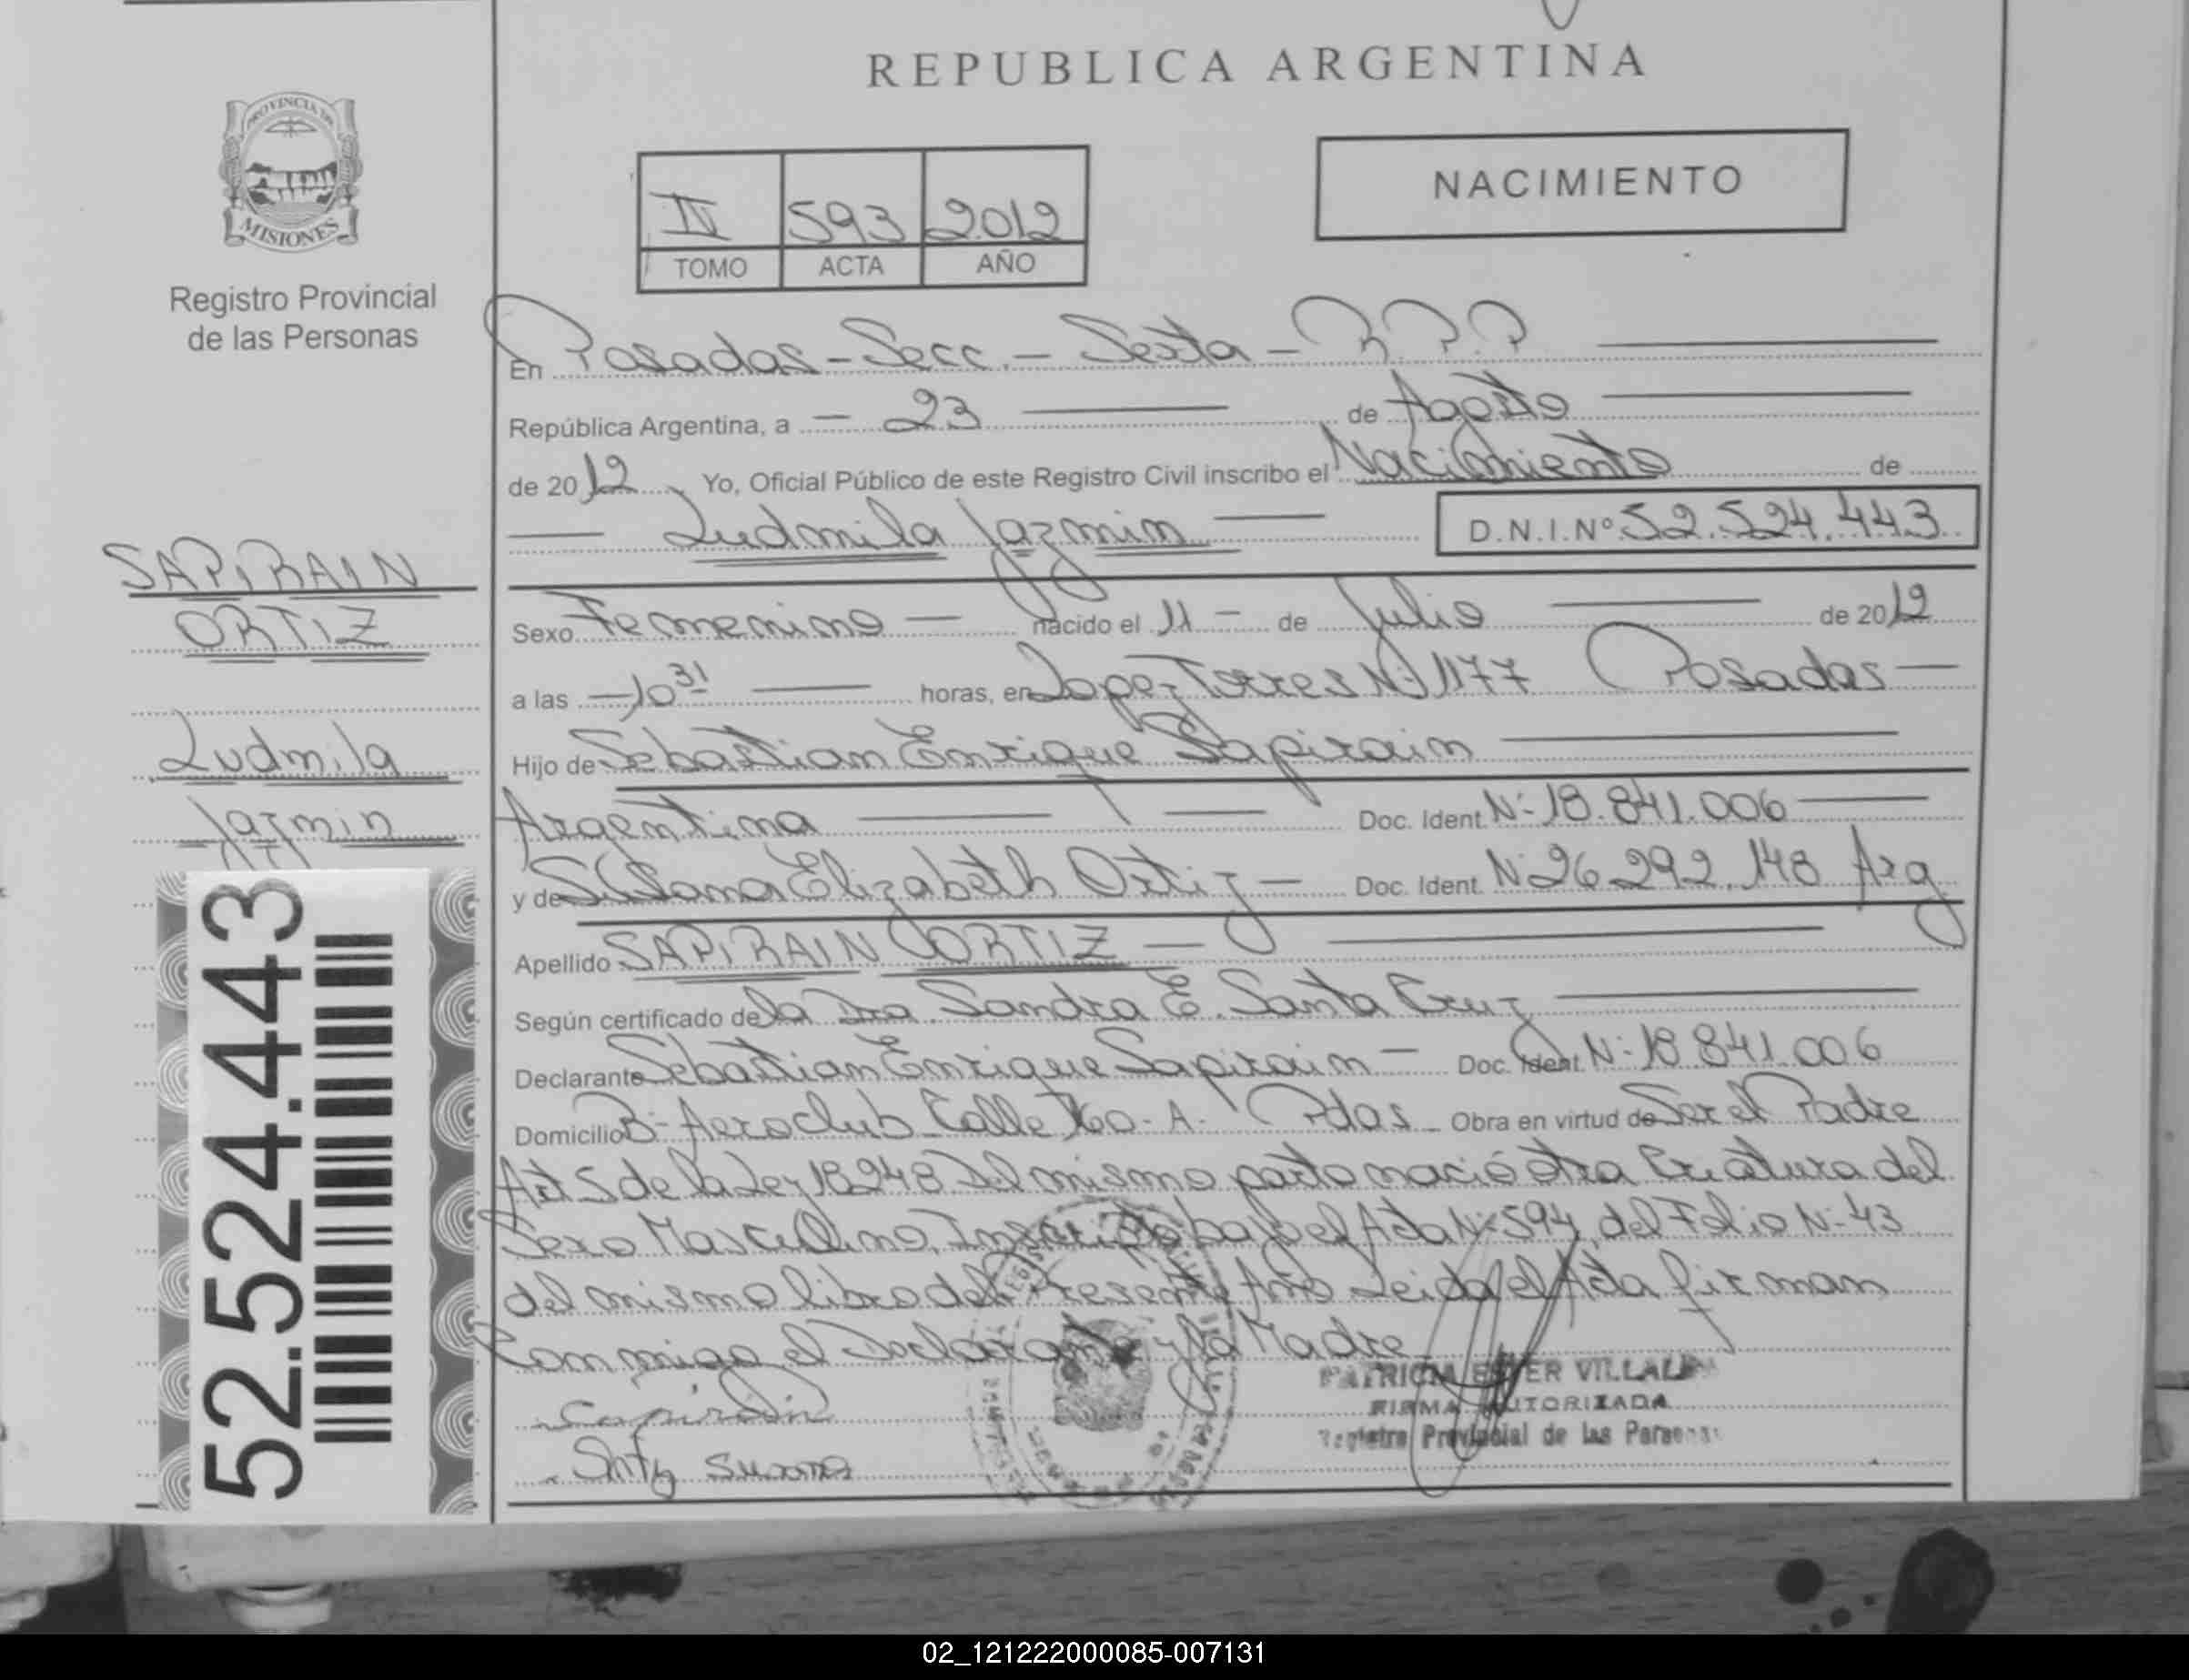 REPUBLICA ARGENTINA
PROVINCIA DE
MISIONES
Registro Provincial
de las Personas
IV 593 2012
TOMO ACTA AÑO
NACIMIENTO
En Posadas - Secc. - Sexta - R.P.P
República Argentina, a - 23 de Agosto
de 2012 Yo, Oficial Público de este Registro Civil inscribo el Nacimiento de
Ludmila Jazmin D.N.I.Nº 52.524.443
SAPIRAIN
ORTIZ
Ludmila
Jazmin
52.524.443
Sexo Femenino - nacido el 11 - de Julio de 2012
a las - 10 31 horas, en Lopez Torres Nº 1177 Posadas -
Hijo de Sebastian Enrique Sapirain
Argentina Doc. Ident. Nº 18.841.006
y de Susana Elizabeth Ortiz - Doc. Ident. Nº 26.292.148 Arg.
Apellido SAPIRAIN ORTIZ -
Según certificado de la Dra. Sandra E. Santa Cruz
Declarante Sebastian Enrique Sapirain - Doc. Ident. Nº 18.841.006
Domicilio Bº Aeroclub Calle 160 - A - Pdas. Obra en virtud de Ser el Padre
Art 5 de la Ley 18248 Del mismo parto nació otra Criatura del
Sexo Masculino, Inscripto bajo el Acta Nº 594, del Folio Nº 43
del mismo libro del Presente Año Leida el Acta firman
Conmigo el Declarante y la Madre
Sapirain
Ortiz Susana
PATRICIA ESTER
FIRMA AUTORIZADA
Registro Provincial de las Personas
02_121222000085-007131